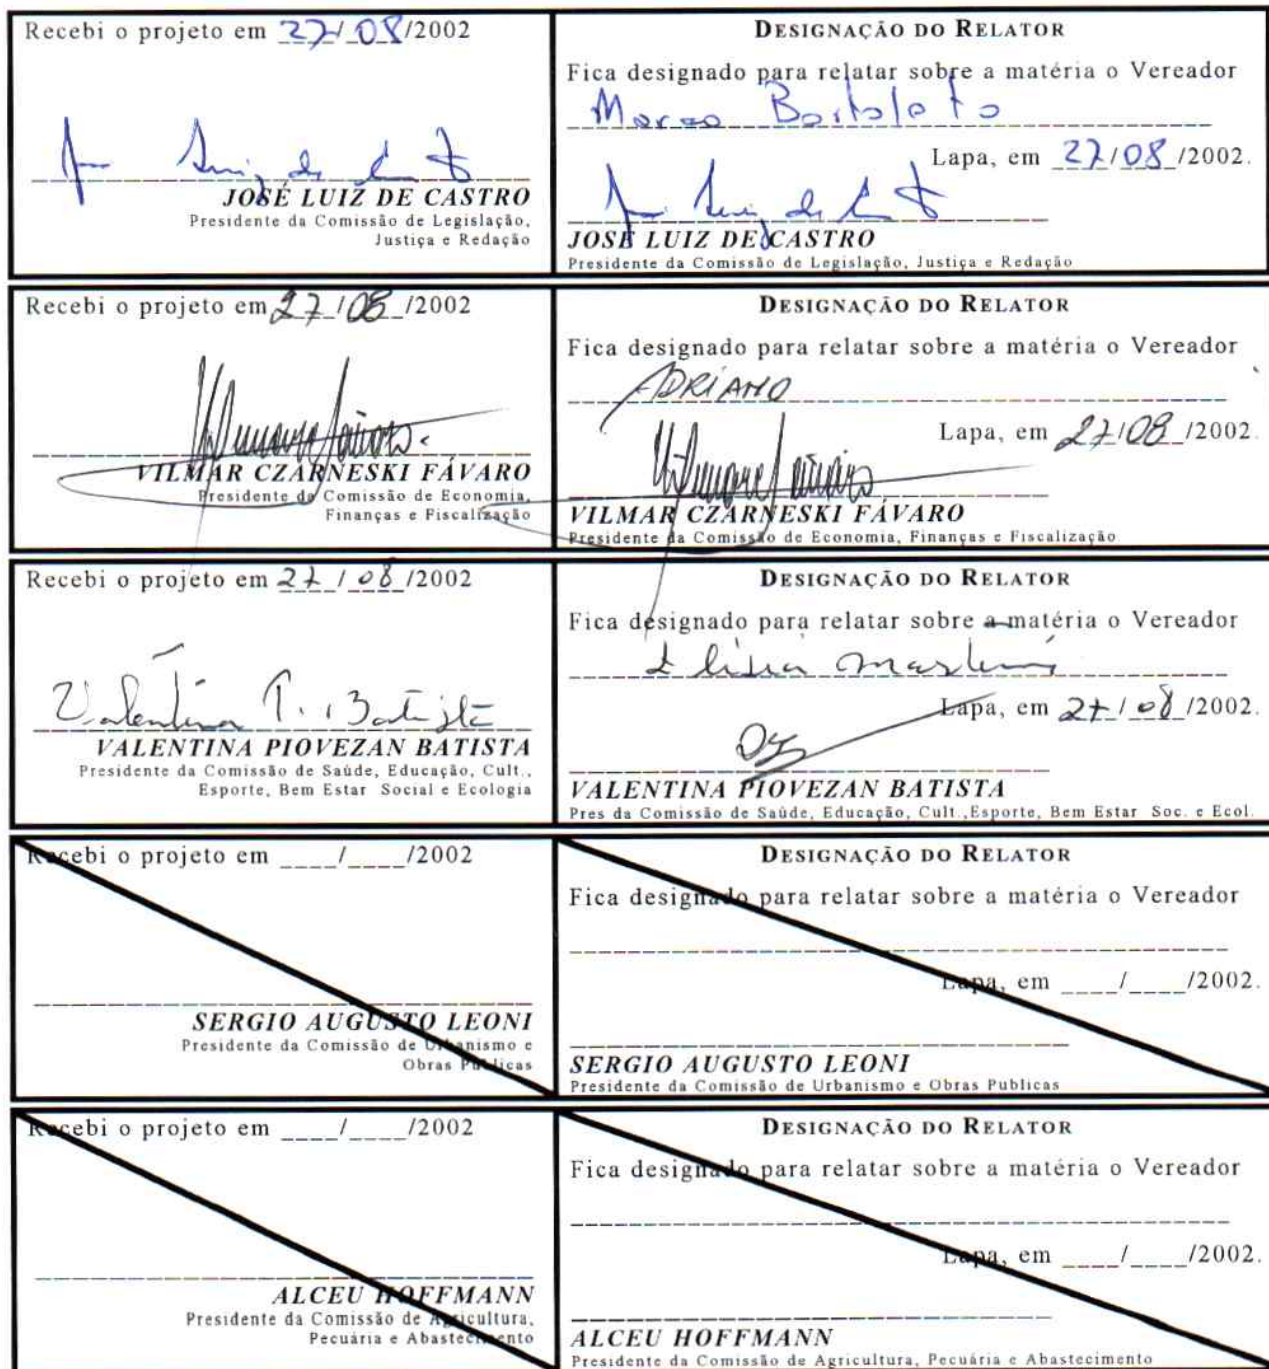 Recebi o projeto em 27/08/2002
JOSÉ LUIZ DE CASTRO
Presidente da Comissão de Legislação,
Justiça e Redação
DESIGNAÇÃO DO RELATOR
Fica designado para relatar sobre a matéria o Vereador
Marco Bortoleto
Lapa, em 27/08/2002.
JOSÉ LUIZ DE CASTRO
Presidente da Comissão de Legislação, Justiça e Redação
Recebi o projeto em 27/08/2002
VILMAR CZARNESKI FÁVARO
Presidente da Comissão de Economia,
Finanças e Fiscalização
DESIGNAÇÃO DO RELATOR
Fica designado para relatar sobre a matéria o Vereador
ADRIANO
Lapa, em 27/08/2002.
VILMAR CZARNESKI FÁVARO
Presidente da Comissão de Economia, Finanças e Fiscalização
Recebi o projeto em 27/08/2002
Valentina P. Batista
VALENTINA PIOVEZAN BATISTA
Presidente da Comissão de Saúde, Educação, Cult.,
Esporte, Bem Estar Social e Ecologia
DESIGNAÇÃO DO RELATOR
Fica designado para relatar sobre a matéria o Vereador
Lapa, em 27/08/2002.
VALENTINA PIOVEZAN BATISTA
Pres da Comissão de Saúde, Educação, Cult.,Esporte, Bem Estar Soc. e Ecol.
Recebi o projeto em ____/____/2002
SERGIO AUGUSTO LEONI
Presidente da Comissão de Urbanismo e
Obras Publicas
DESIGNAÇÃO DO RELATOR
Fica designado para relatar sobre a matéria o Vereador
Lapa, em ____/____/2002.
SERGIO AUGUSTO LEONI
Presidente da Comissão de Urbanismo e Obras Publicas
Recebi o projeto em ____/____/2002
ALCEU HOFFMANN
Presidente da Comissão de Agricultura,
Pecuária e Abastecimento
DESIGNAÇÃO DO RELATOR
Fica designado para relatar sobre a matéria o Vereador
Lapa, em ____/____/2002.
ALCEU HOFFMANN
Presidente da Comissão de Agricultura, Pecuária e Abastecimento